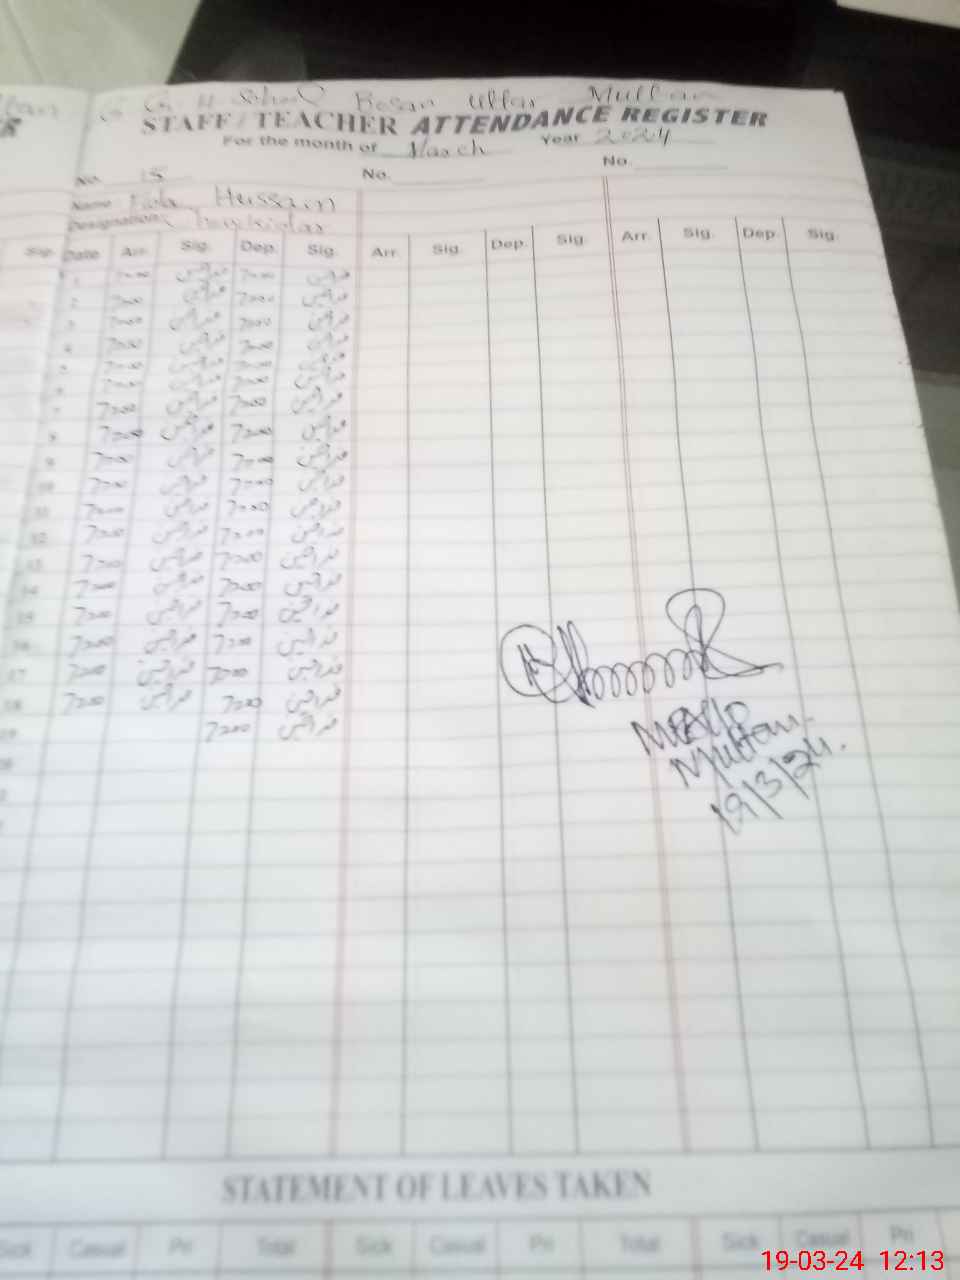 G. G. H. School Bosan Uttar Multan
STAFF / TEACHER ATTENDANCE REGISTER
For the month of March Year 2024
No. 15 No. No.
Name Fida Hussain
Designation
Sig. Date Arr. Sig. Dep. Sig. Arr. Sig. Dep. Sig. Arr. Sig. Dep. Sig.
1 7:00 فداحسین 7:00 فداحسین
2 7:00 فداحسین 7:00 فداحسین
3 7:00 فداحسین 7:00 فداحسین
4 7:00 فداحسین 7:00 فداحسین
5 7:00 فداحسین 7:00 فداحسین
6 7:00 فداحسین 7:00 فداحسین
7 7:00 فداحسین 7:00 فداحسین
8 7:00 فداحسین 7:00 فداحسین
9 7:00 فداحسین 7:00 فداحسین
10 7:00 فداحسین 7:00 فداحسین
11 7:00 فداحسین 7:00 فداحسین
12 7:00 فداحسین 7:00 فداحسین
13 7:00 فداحسین 7:00 فداحسین
14 7:00 فداحسین 7:00 فداحسین
15 7:00 فداحسین 7:00 فداحسین
16 7:00 فداحسین 7:00 فداحسین
17 7:00 فداحسین 7:00 فداحسین
18 7:00 فداحسین 7:00 فداحسین
19 7:00 فداحسین
Multan.
19/3/24.
STATEMENT OF LEAVES TAKEN
Sick Casual Pri Total Sick Casual Pri Total Sick Casual Pri
19-03-24 12:13